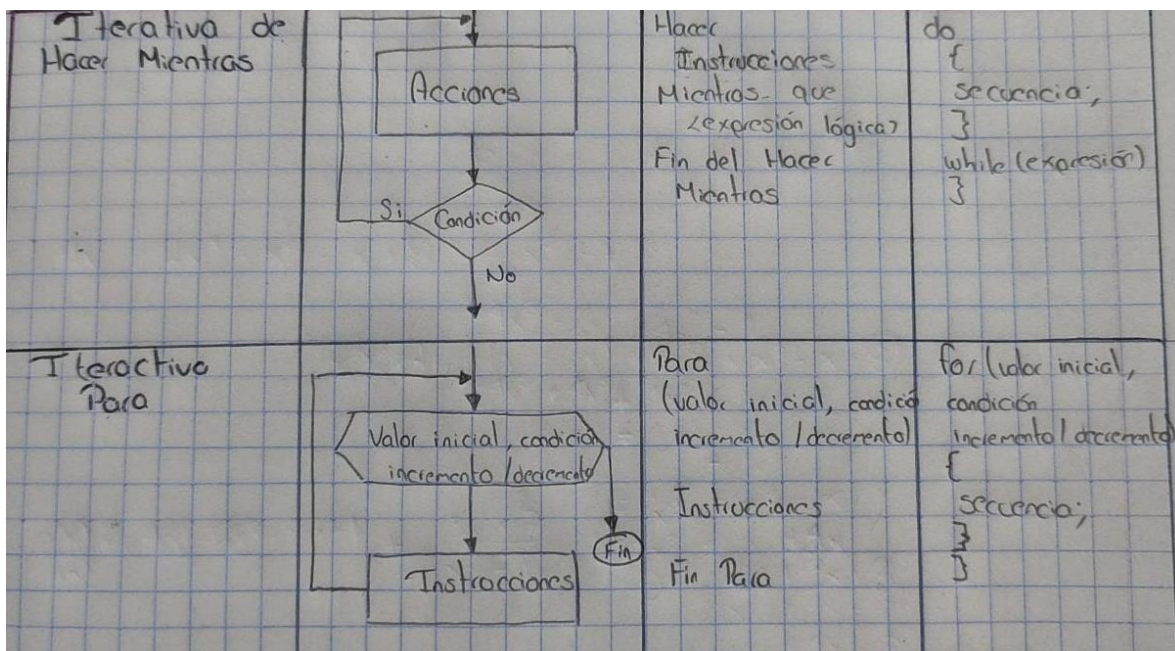 Iterativa de
Hacer Mientras
Acciones
Condición
Si
No
Hacer
Instrucciones
Mientras que
<expresión lógica>
Fin del Hacer
Mientras
do
{
secuencia;
}
while (expresión)
}
Iteractiva
Para
Valor inicial, condición
incremento / decremento
Fin
Instrucciones
Para
(valor inicial, condició
incremento / decremento)
Instrucciones
Fin Para
for (valor inicial,
condición
incremento / decremento)
{
secuencia;
}
}